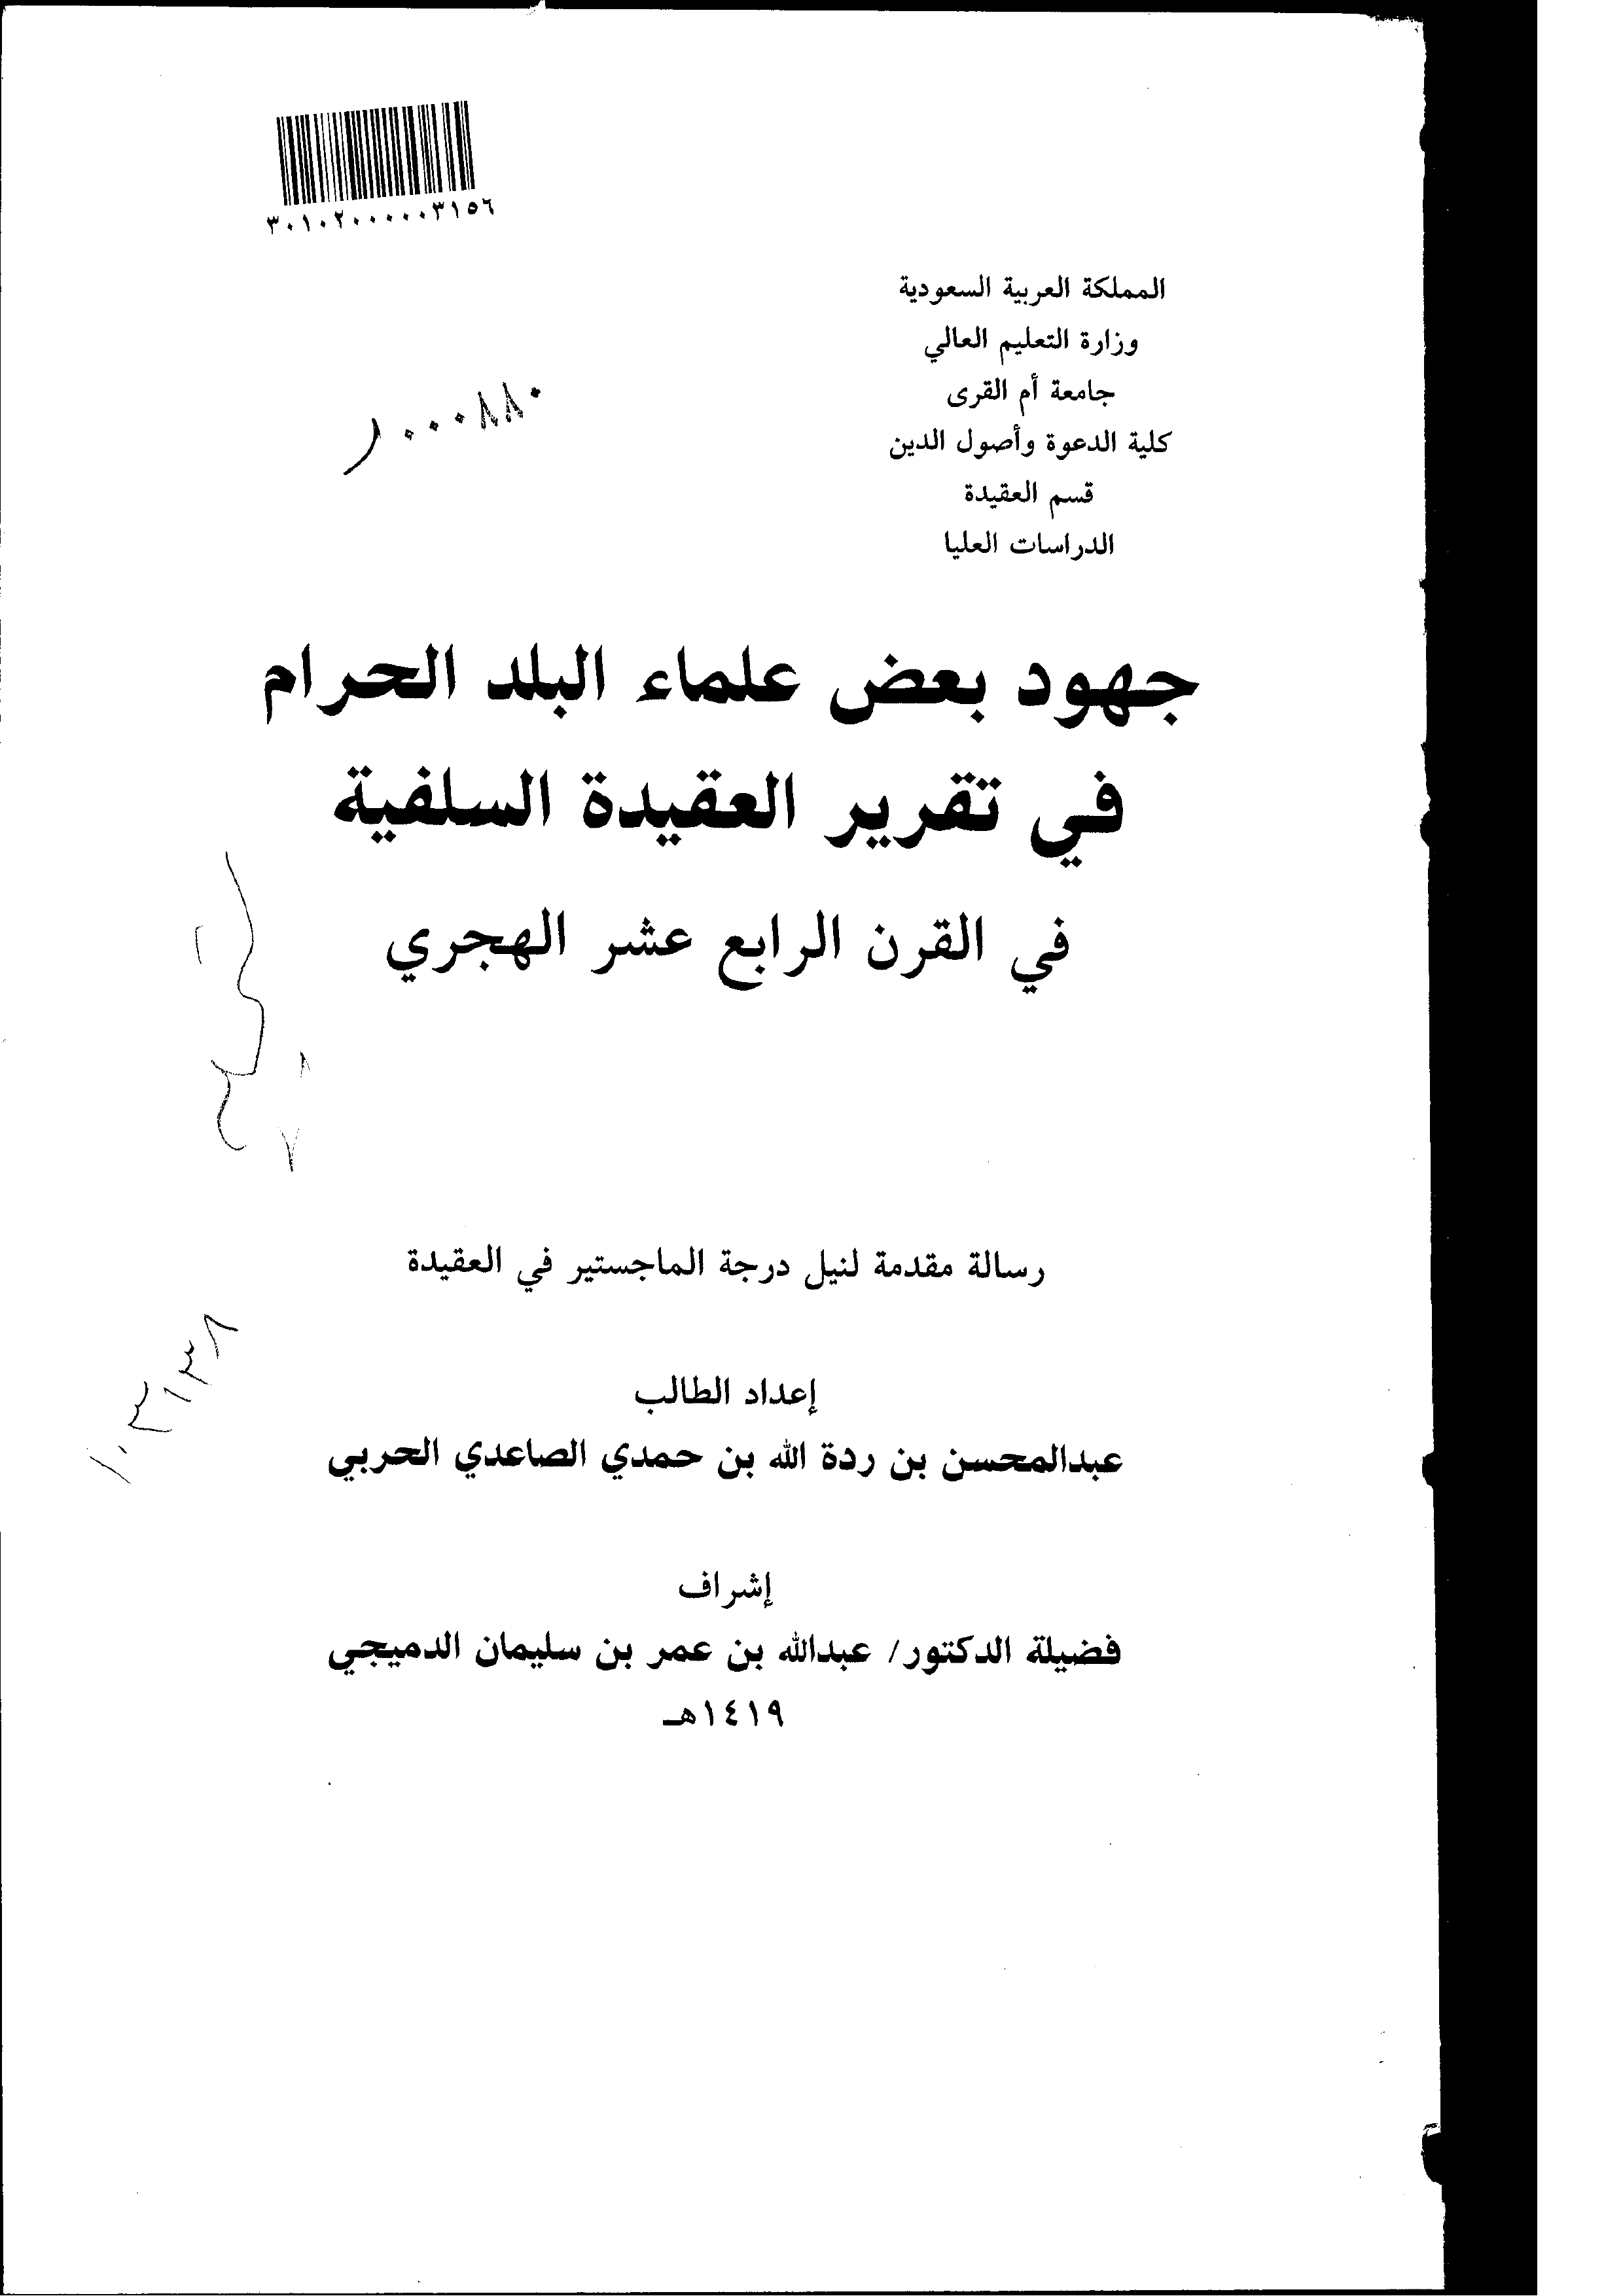 ٣٠١٠٢٠٠٠٠٠٣١٥٦
المملكة العربية السعودية
وزارة التعليم العالي
جامعة أم القرى
كلية الدعوة وأصول الدين
قسم العقيدة
الدراسات العليا
جهود بعض علماء البلد الحرام
في تقرير العقيدة السلفية
في القرن الرابع عشر الهجري
رسالة مقدمة لنيل درجة الماجستير في العقيدة
إعداد الطالب
عبدالمحسن بن ردة الله بن حمدي الصاعدي الحربي
إشراف
فضيلة الدكتور/ عبدالله بن عمر بن سليمان الدميجي
١٤١٩هـ